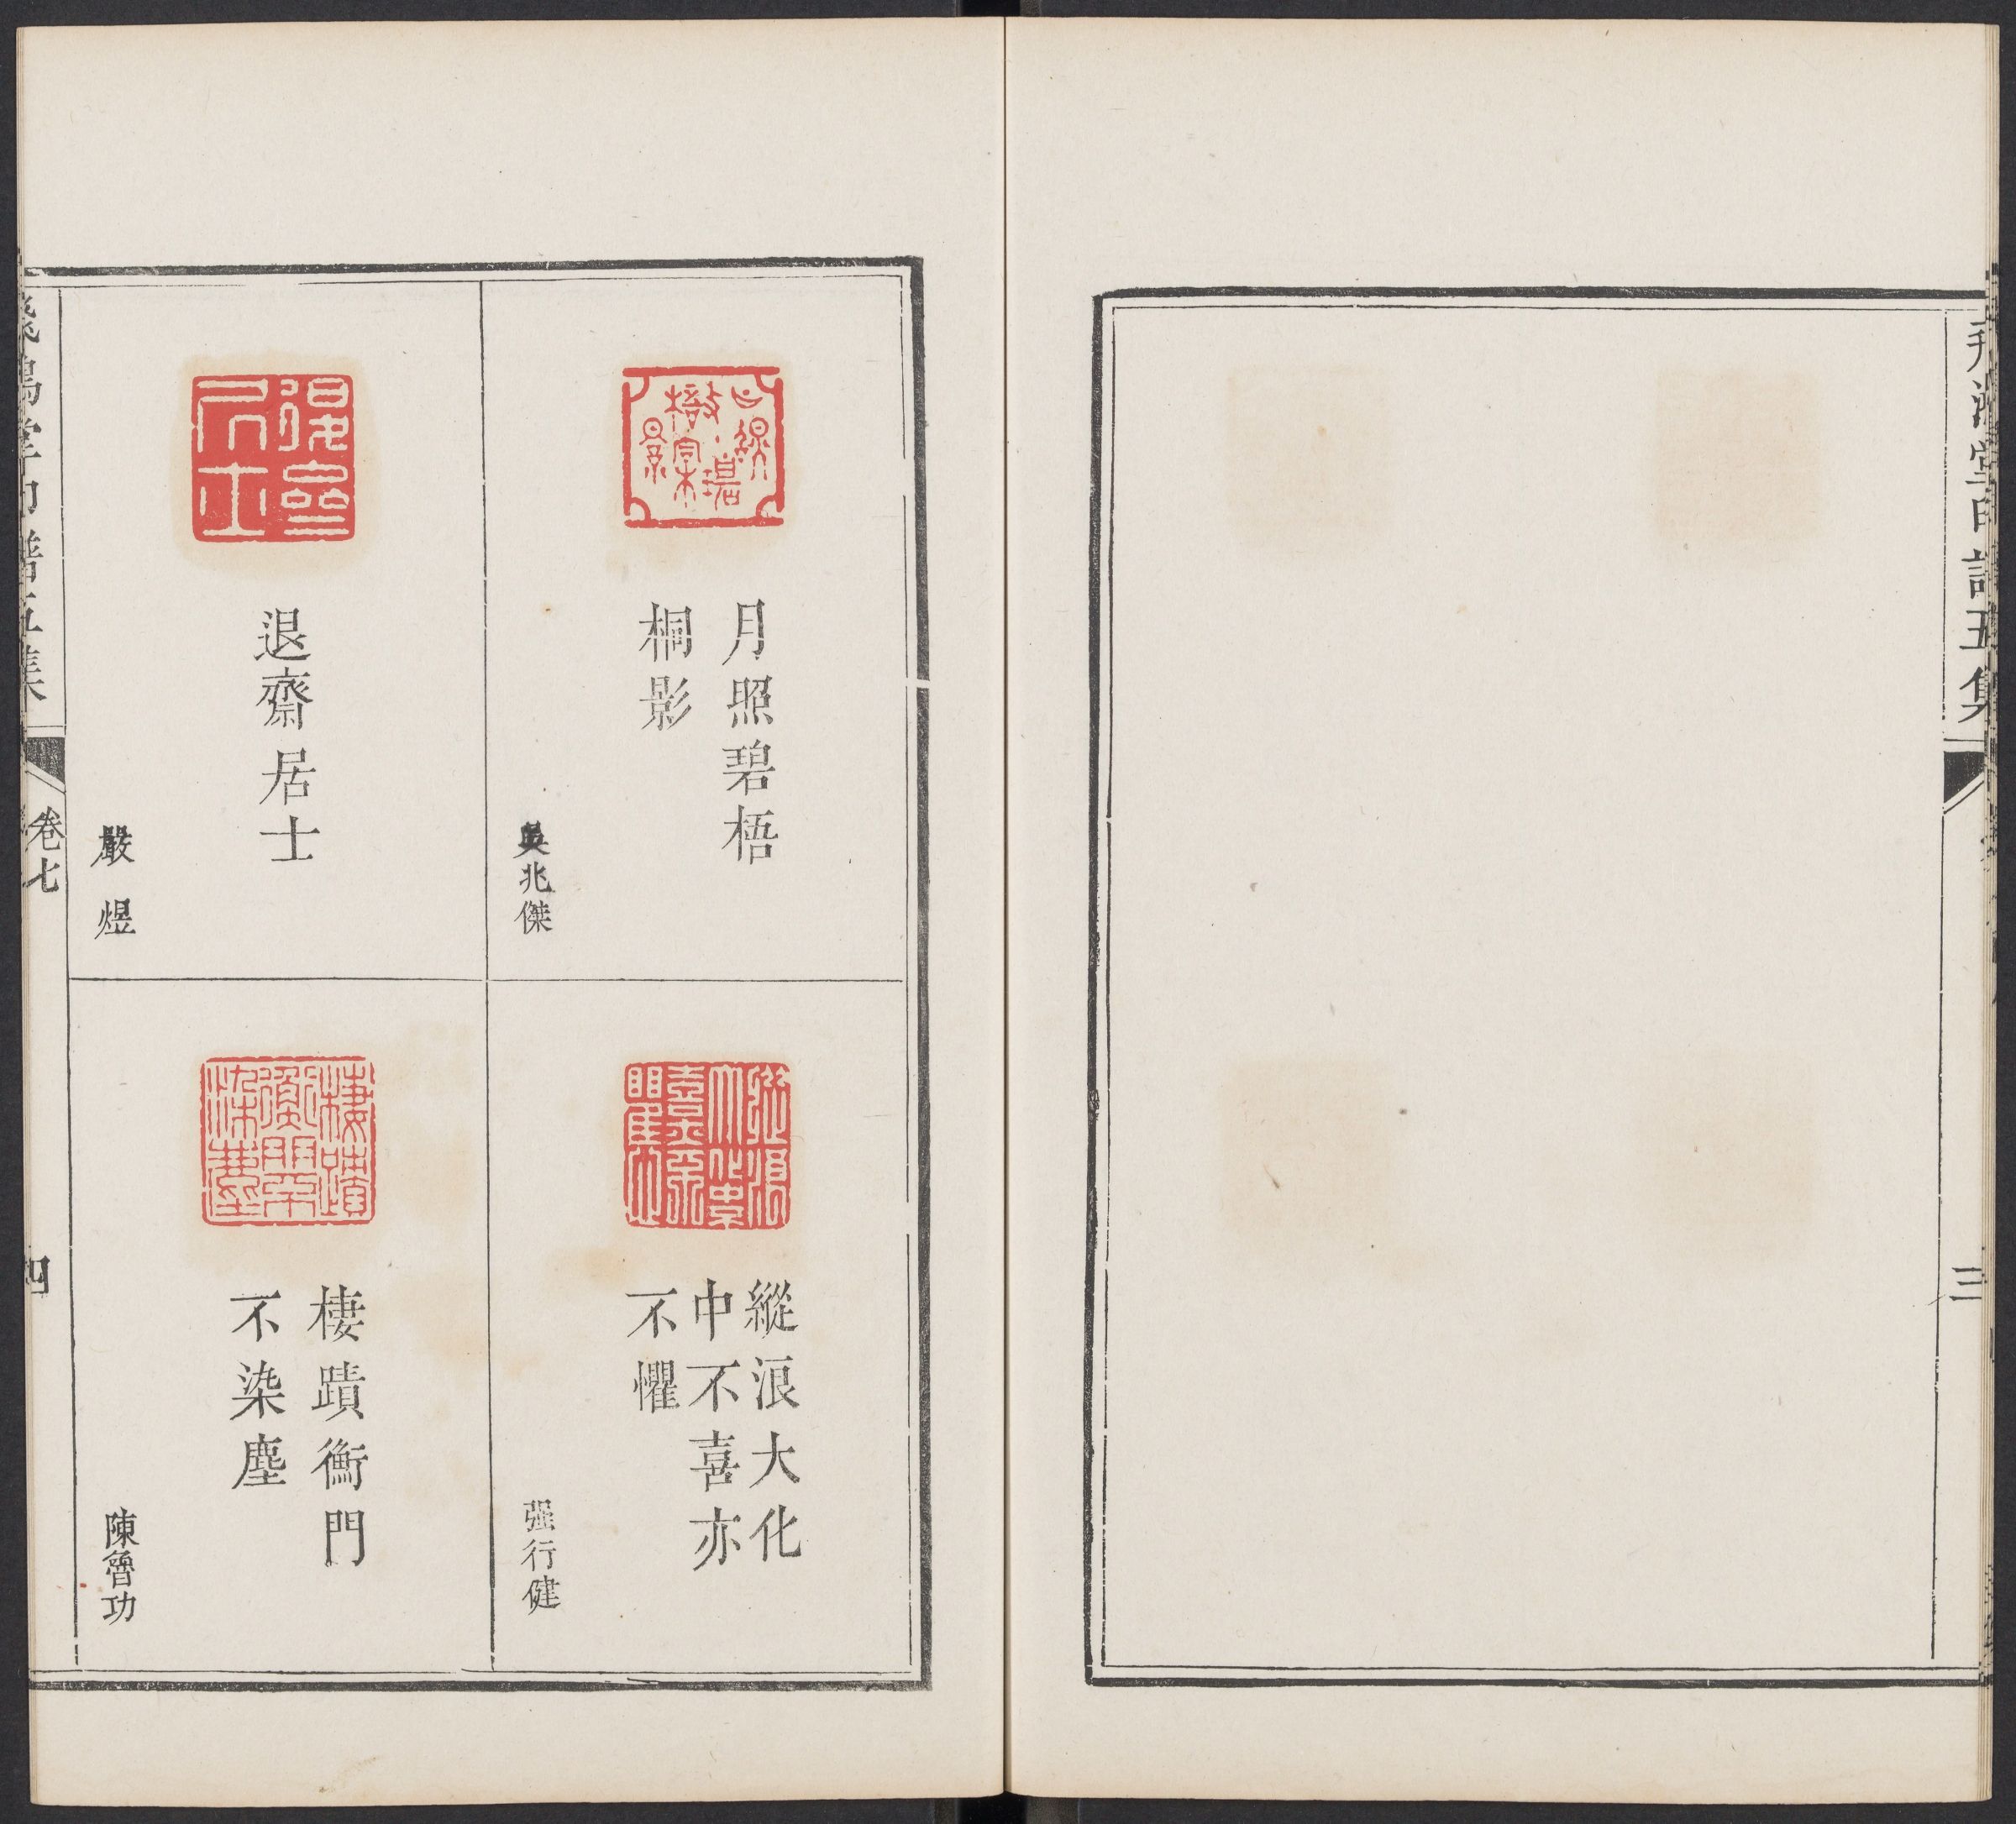 飛鴻堂印譜五集
三
月照碧梧
桐影
吳兆傑
縱浪大化
中不喜亦
不懼
强行健
退齋居士
嚴煜
棲蹟衡門
不染塵
陳魯功
飛鴻堂印譜五集
卷七
四